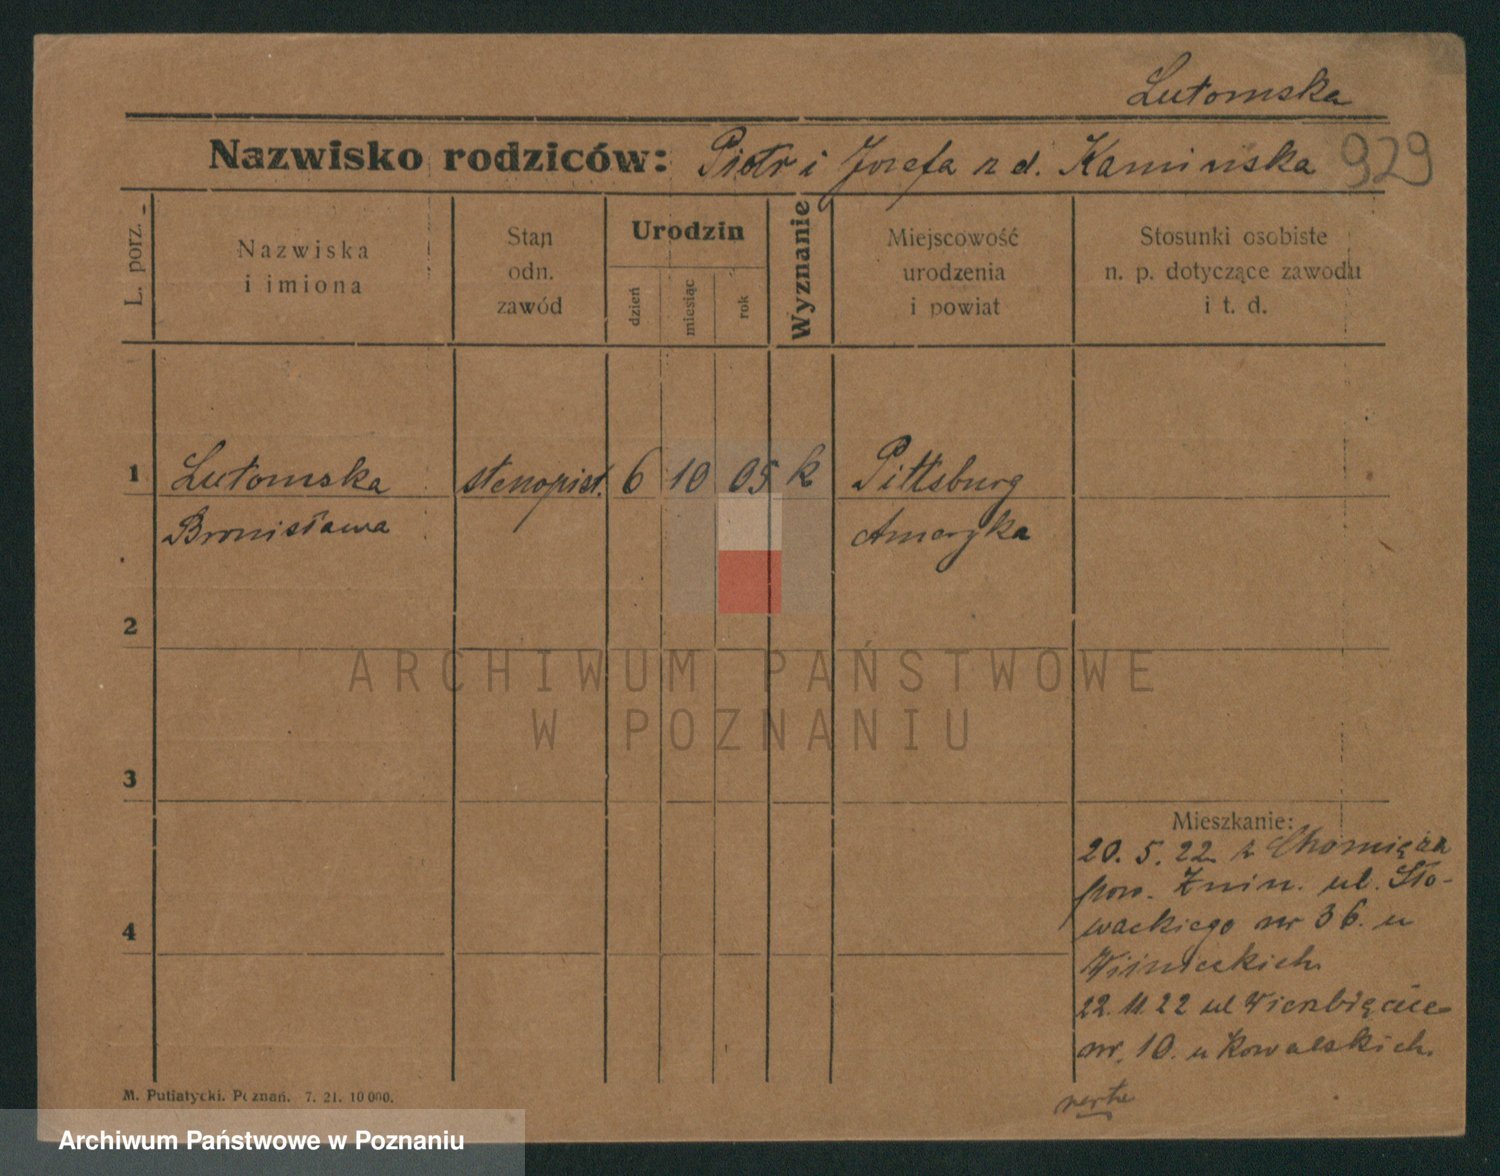 Lutomska
Nazwisko rodziców: Piotr i Jozefa z d. Kaminska
929
L. porz.
Nazwiska
i imiona
Stan
odn.
zawód
Urodzin
dzień
miesiąc
rok
Wyznanie
Miejscowość
urodzenia
i powiat
Stosunki osobiste
n. p. dotyczące zawodu
i t. d.
1 Lutomska stenopist. 6 10 05 k Pittsburg
Bronisława Ameryka
2
3
4
Mieszkanie:
20. 5. 22 z Chomięża
pow. Żnin. ul. Sło-
wackiego nr 36. u
Wiśnieckich
22. 11. 22 ul Wierzbięcice
nr. 10. u Kowalskich.
verte
M. Putiatycki. Poznań. 7. 21. 10 000.
ARCHIWUM PAŃSTWOWE
W POZNANIU
Archiwum Państwowe w Poznaniu